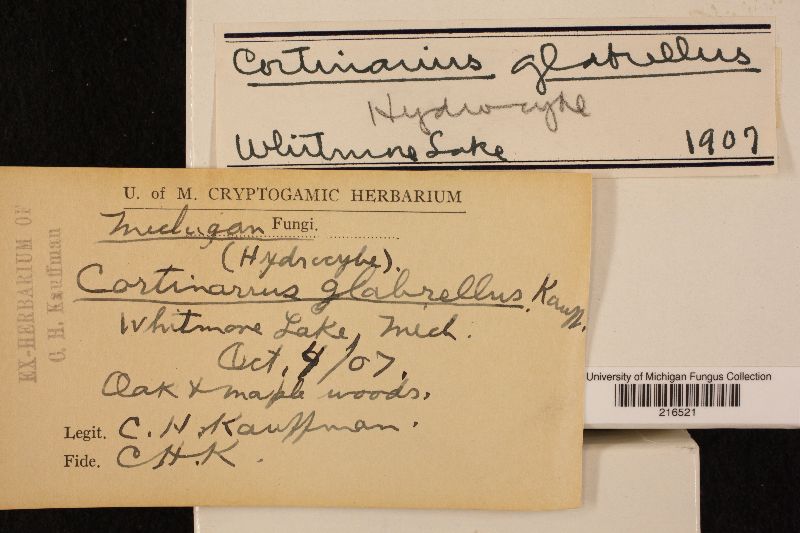 Cortinarius glabrellus
Hydrocybe
Whitmore Lake 1907
U. of M. CRYPTOGAMIC HERBARIUM
Michigan Fungi.
(Hydrocybe).
Cortinarius glabrellus, Kauff.
Whitmore Lake, Mich.
Oct. 4/07.
Oak & maple woods.
Legit. C. H. Kauffman.
Fide. C H. K.
EX-HERBARIUM OF
C. H. Kauffman
University of Michigan Fungus Collection
216521